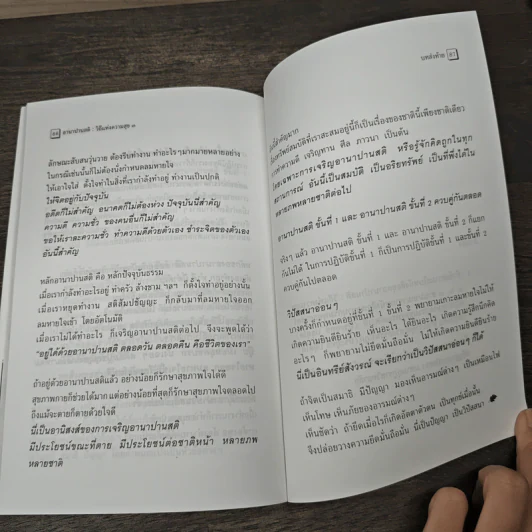 อานาปานสติ : วิถีแห่งความสุข ๑
ลักษณะสับสนวุ่นวาย ต้องรีบทำงาน ทำอะไรๆมากมายหลายอย่าง
ในกรณีเช่นนั้นก็ไม่ต้องนั่งกำหนดลมหายใจ
ให้เอาใจใส่ ตั้งใจทำในสิ่งที่เรากำลังทำอยู่ ทำงานเป็นปกติ
ให้จิตอยู่กับปัจจุบัน
อดีตก็ไม่สำคัญ อนาคตก็ไม่ต้องห่วง ปัจจุบันนี้สำคัญ
ความดี ความชั่ว ของคนอื่นก็ไม่สำคัญ
ขอให้เราละความชั่ว ทำความดีด้วยตัวเอง ชำระจิตของตัวเอง
อันนี้สำคัญ
หลักอานาปานสติ คือ หลักปัจจุบันธรรม
เมื่อเรากำลังทำอะไรอยู่ ทำครัว ล้างชาม ฯลฯ ก็ตั้งใจทำอยู่อย่างนั้น
เมื่อเราหยุดทำงาน สติสัมปชัญญะ ก็กลับมาที่ลมหายใจออก
ลมหายใจเข้า โดยอัตโนมัติ
เมื่อเราไม่ได้ทำอะไร ก็เจริญอานาปานสติต่อไป จึงจะพูดได้ว่า
"อยู่ได้ด้วยอานาปานสติ ตลอดวัน ตลอดคืน คือชีวิตของเรา"
ถ้าอยู่ด้วยอานาปานสติแล้ว อย่างน้อยก็รักษาสุขภาพใจได้ดี
สุขภาพกายก็ช่วยได้มาก แต่อย่างน้อยที่สุดก็รักษาสุขภาพใจตลอดไป
ถึงแม้จะตายก็ตายด้วยใจดี
นี่เป็นอานิสงส์ของการเจริญอานาปานสติ
มีประโยชน์ขณะที่ตาย มีประโยชน์ต่อชาติหน้า หลายภพ
หลายชาติ
บทส่งท้าย
นี่สำคัญมาก
ทรัพย์สมบัติที่เราสะสมอยู่นี้ก็เป็นเรื่องของชาตินี้เพียงชาติเดียว
การทำความดี เจริญทาน ศีล ภาวนา เป็นต้น
โดยเฉพาะการเจริญอานาปานสติ หรือรู้จักคิดถูกในทุก
สถานการณ์ อันนี้เป็นสมบัติ เป็นอริยทรัพย์ เป็นที่พึ่งได้ใน
หลายภพหลายชาติต่อไป
อานาปานสติ ขั้นที่ 1 และ อานาปานสติ ขั้นที่ 2 ควบคู่กันตลอด
จริงๆ แล้ว อานาปานสติ ขั้นที่ 1 และ อานาปานสติ ขั้นที่ 2 ก็แยก
กันไม่ได้ ในการปฏิบัติขั้นที่ 1 ก็เป็นการปฏิบัติขั้นที่ 1 และขั้นที่ 2
ควบคู่กันไปตลอด
วิปัสสนาอ่อนๆ
บางครั้งก็กำหนดอยู่ที่ขั้นที่ 1 ขั้นที่ 2 พยายามเกาะลมหายใจไม่ให้
เกิดความยินดียินร้าย เห็นอะไร ได้ยินอะไร เกิดความรู้สึกนึกคิด
อะไรๆ ก็พยายามไม่ยึดมั่นถือมั่น ไม่ให้เกิดความยินดียินร้าย
นี่เป็นอินทรีย์สังวรณ์ จะเรียกว่าเป็นวิปัสสนาอ่อนๆ ก็ได้
ถ้าจิตเป็นสมาธิ มีปัญญา มองเห็นอารมณ์ต่างๆ เป็นเหมือนไฟ
เห็นโทษ เห็นภัยของอารมณ์ต่างๆ
เห็นชัดว่า ถ้ายึดเมื่อไรก็เกิดอัตตาตัวตน เป็นทุกข์เมื่อนั้น
จึงปล่อยวางความยึดมั่นถือมั่น นี่เป็นปัญญา เป็นวิปัสสนา